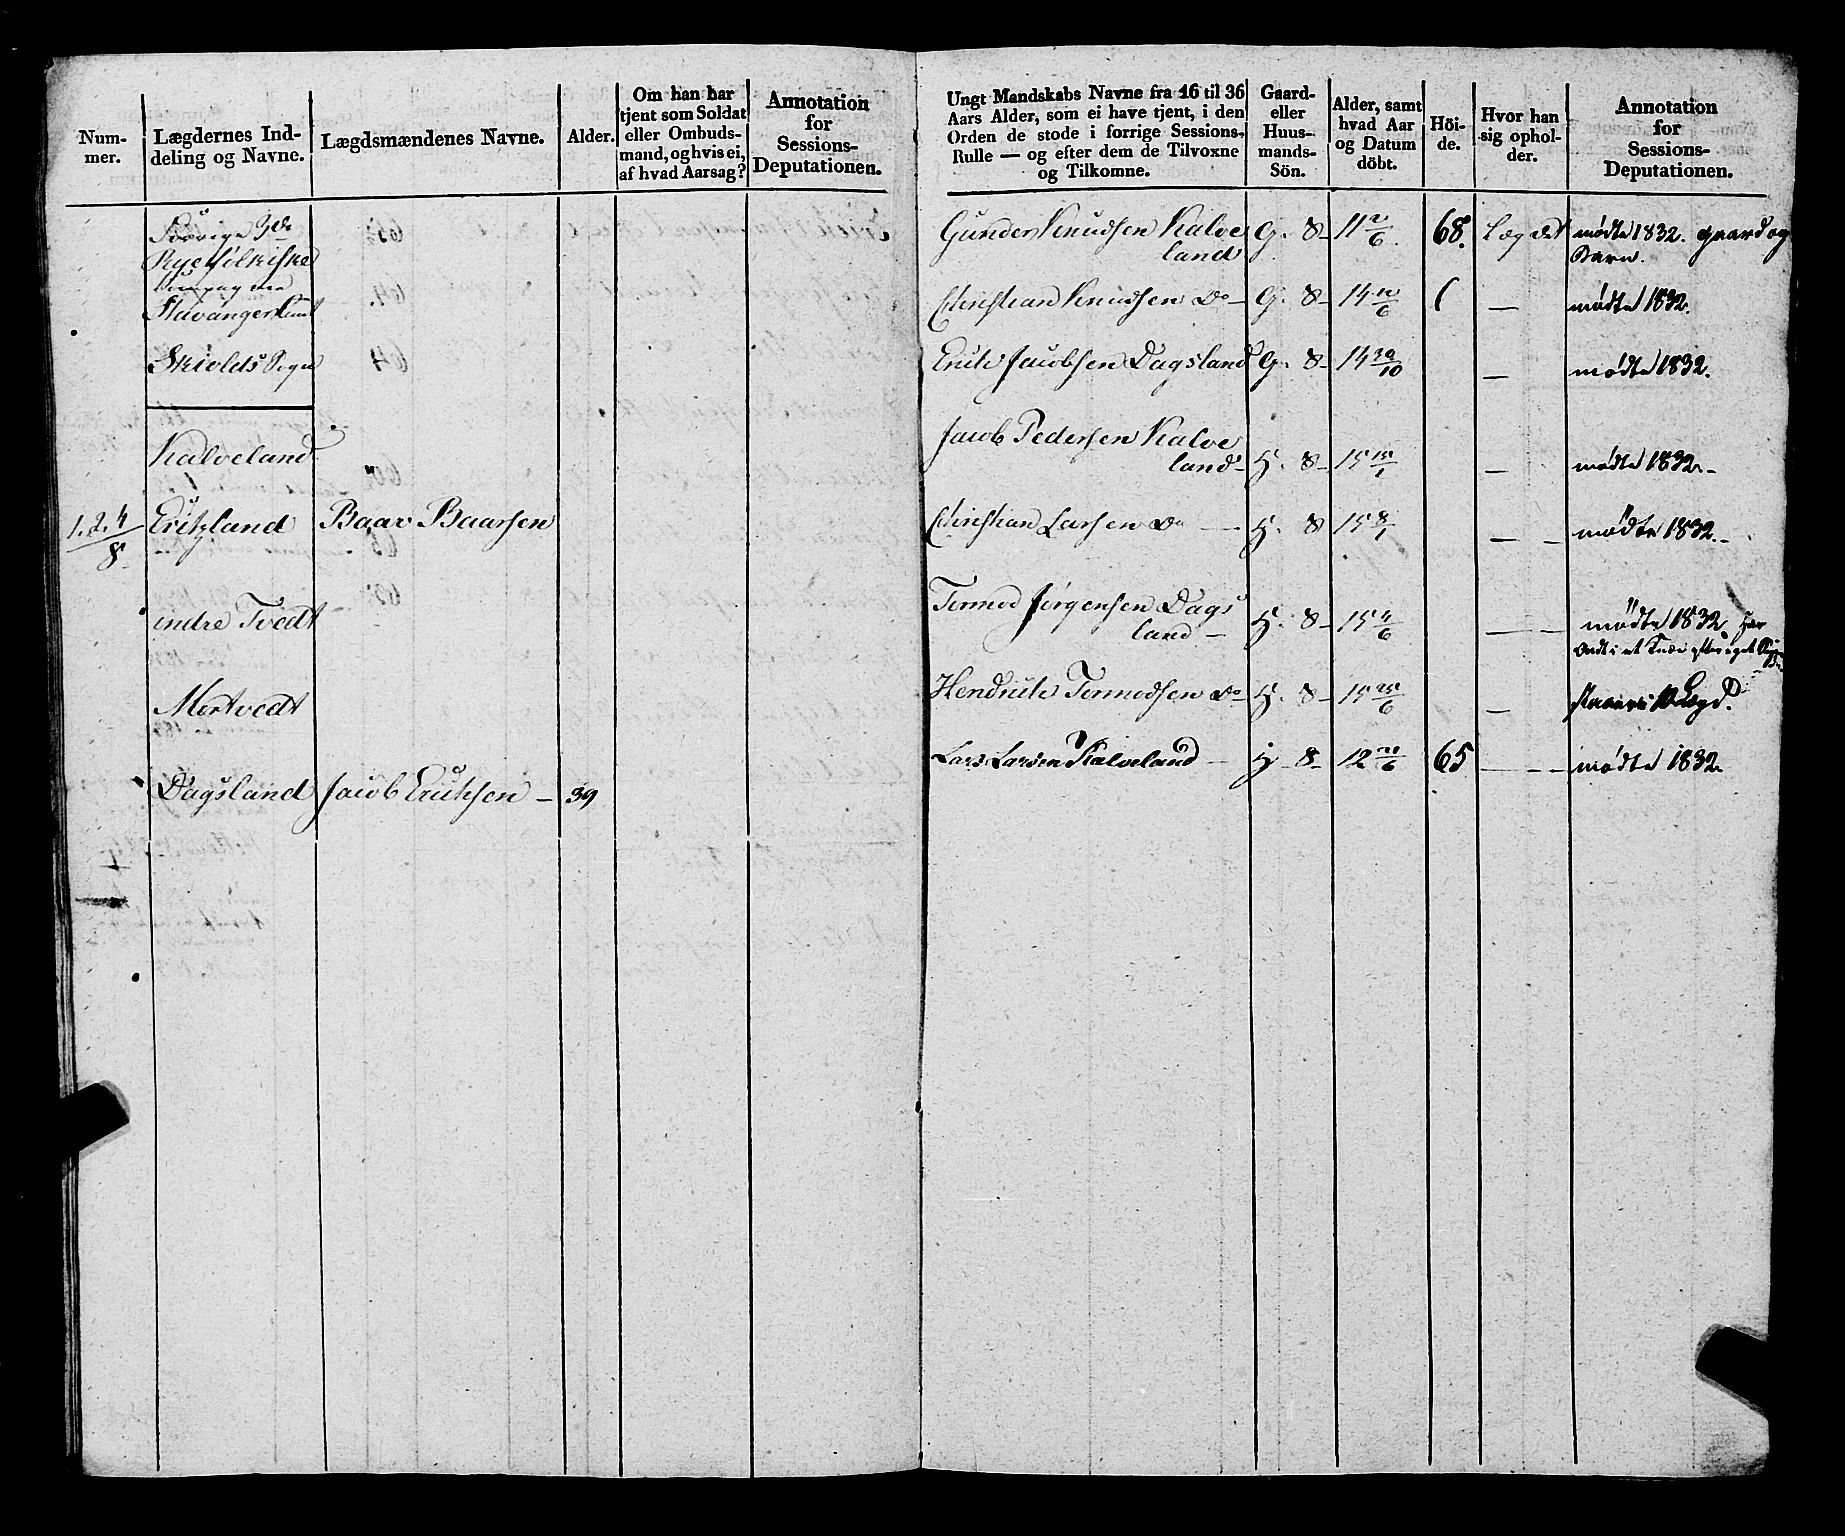 Num-
mer.
Lægdernes Ind-
deling og Navne.
Lægdsmændenes Navne.
Alder.
Om han har
tjent som Soldat
eller Ombuds-
mand, og hvis ei,
af hvad Aarsag?
Annotation
for
Sessions-
Deputationen.
3die
Ryefölkiske
Compagnie
Stavanger Amt
Skiolds Sogn
Kalveland
1.2.4/8 Eritzland Baar Baarsen
indre Tvedt
Mortvedt
Dagsland Jacob Eriksen – 39
Ungt Mandskabs Navne fra 16 til 36
Aars Alder, som ei have tjent, i den
Orden de stode i forrige Sessions-
Rulle — og efter dem de Tilvoxne
og Tilkomne.
Gaard-
eller
Huus-
mands-
Sön.
Alder, samt
hvad Aar
og Datum
döbt.
Höi-
de.
Hvor han
sig ophol-
der.
Annotation
for
Sessions-
Deputationen.
Gunder Knudsen Kalve
land G. 8 – 11 2/6 68. Lægdet mødte 1832. gaard og
Barn.
Christian Knudsen Do – G. 8 – 14 12/6 — mødte 1832.
Erik Jacobsen Dagsland G. 8 – 14 30/10 — mødte 1832.
Jacob Pedersen Kalve
land – H. 8 – 15 15/1 — mødte 1832. –
Christian Larsen Do — H. 8 15 8/1 — – mødte 1832. –
Tormod Jørgensen Dags
land – H. 8 – 15 4/6 — – mødte 1832. har
ondt i et Knæ efter eget
Hendrik Tormodsen Do H. 8 – 15 25/6 — Lægd.
Lars Larsen Kalveland – H 8 – 12 21/6 65 — – – mødte 1832.